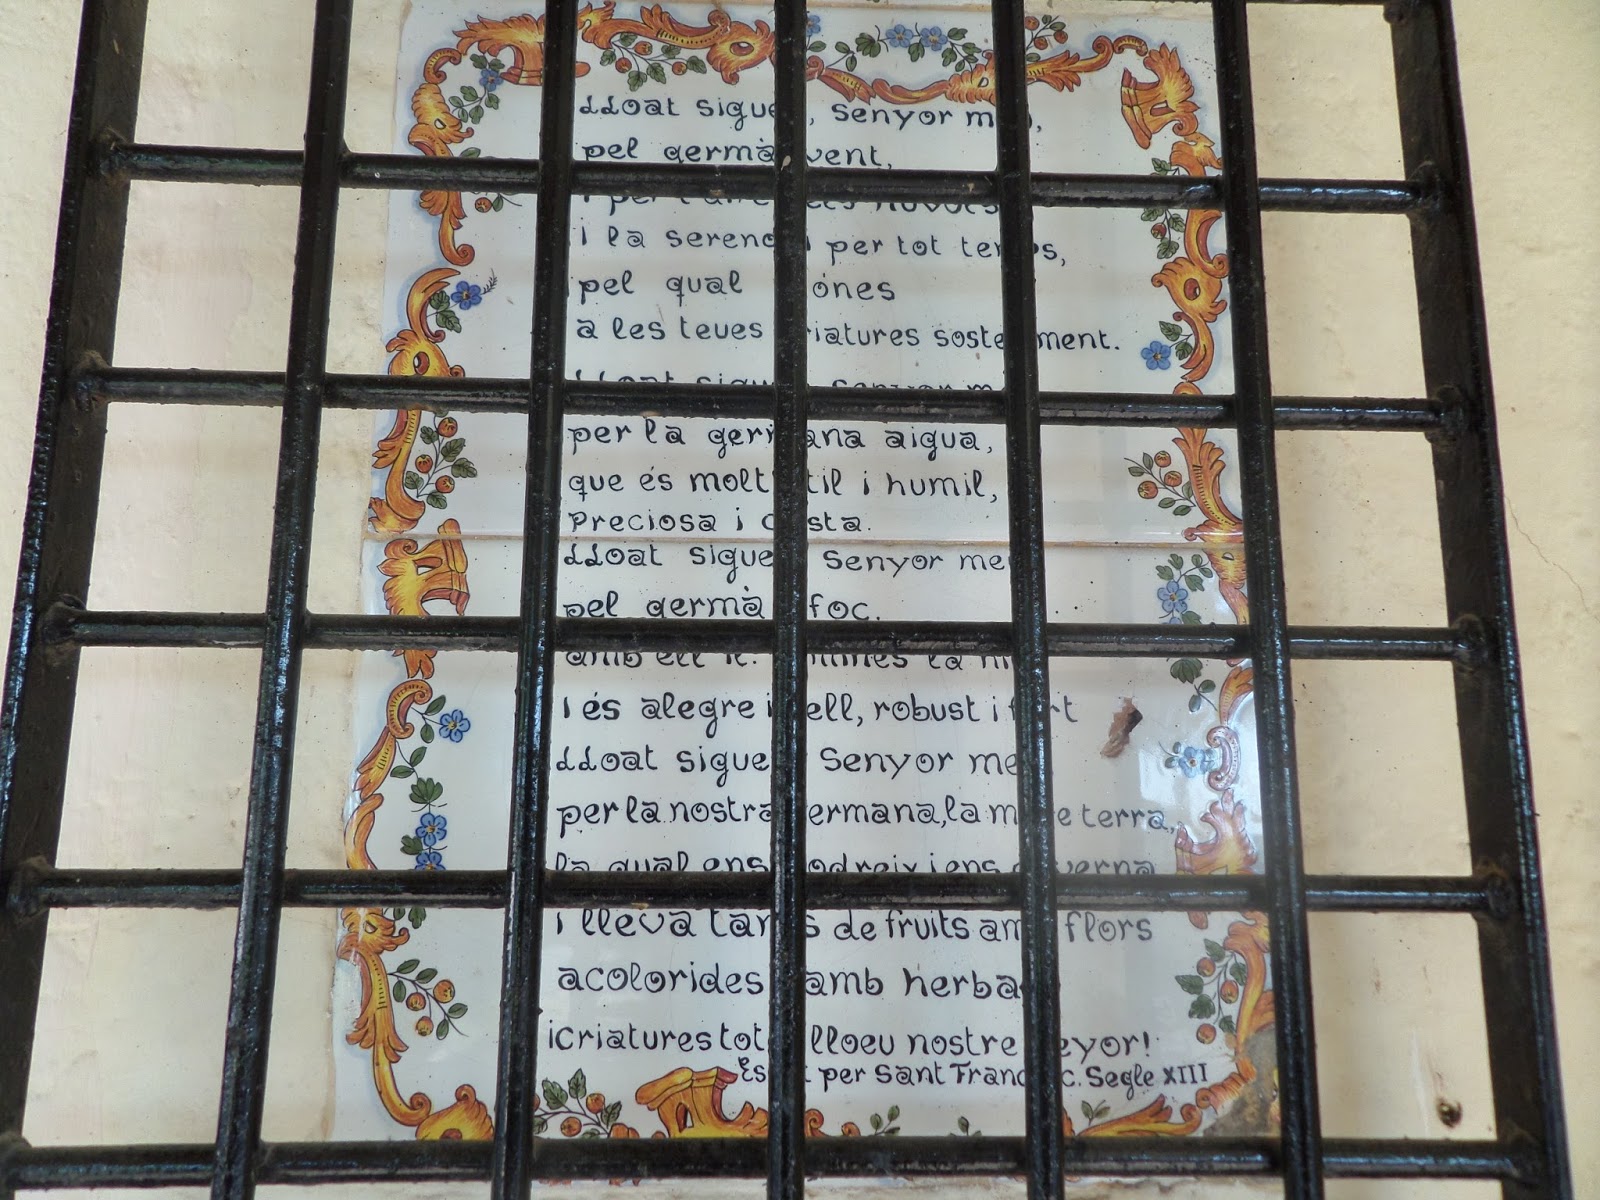 LLoat sigues, Senyor meu,
pel germà vent,
i per l'aire els núvols
i la serenor i per tot temps,
pel qual dónes
a les teues criatures sosteniment.
LLoat sigues, Senyor meu,
per la germana aigua,
que és molt útil i humil,
Preciosa i casta.
LLoat sigues Senyor meu
pel germà foc.
amb ell la
i és alegre i bell, robust i fort
LLoat sigues Senyor meu,
per la nostra germana, la mare terra,
la qual ens i ens governa
i lleva tants de fruits amb flors
acolorides i amb herba
i criatures tot lloeu nostre Senyor!
Escrit per Sant Francesc. Segle XIII